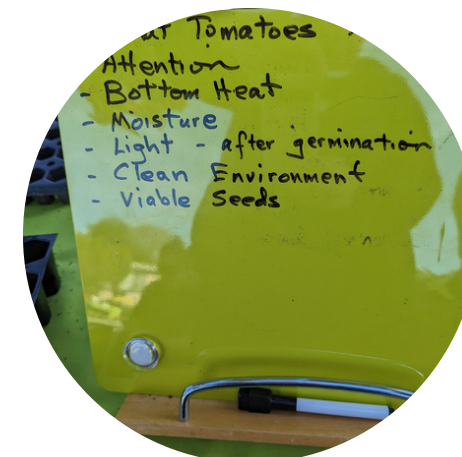 Tomatoes
Attention
- Bottom Heat
- Moisture
- Light - after germination
- Clean Environment
- Viable Seeds